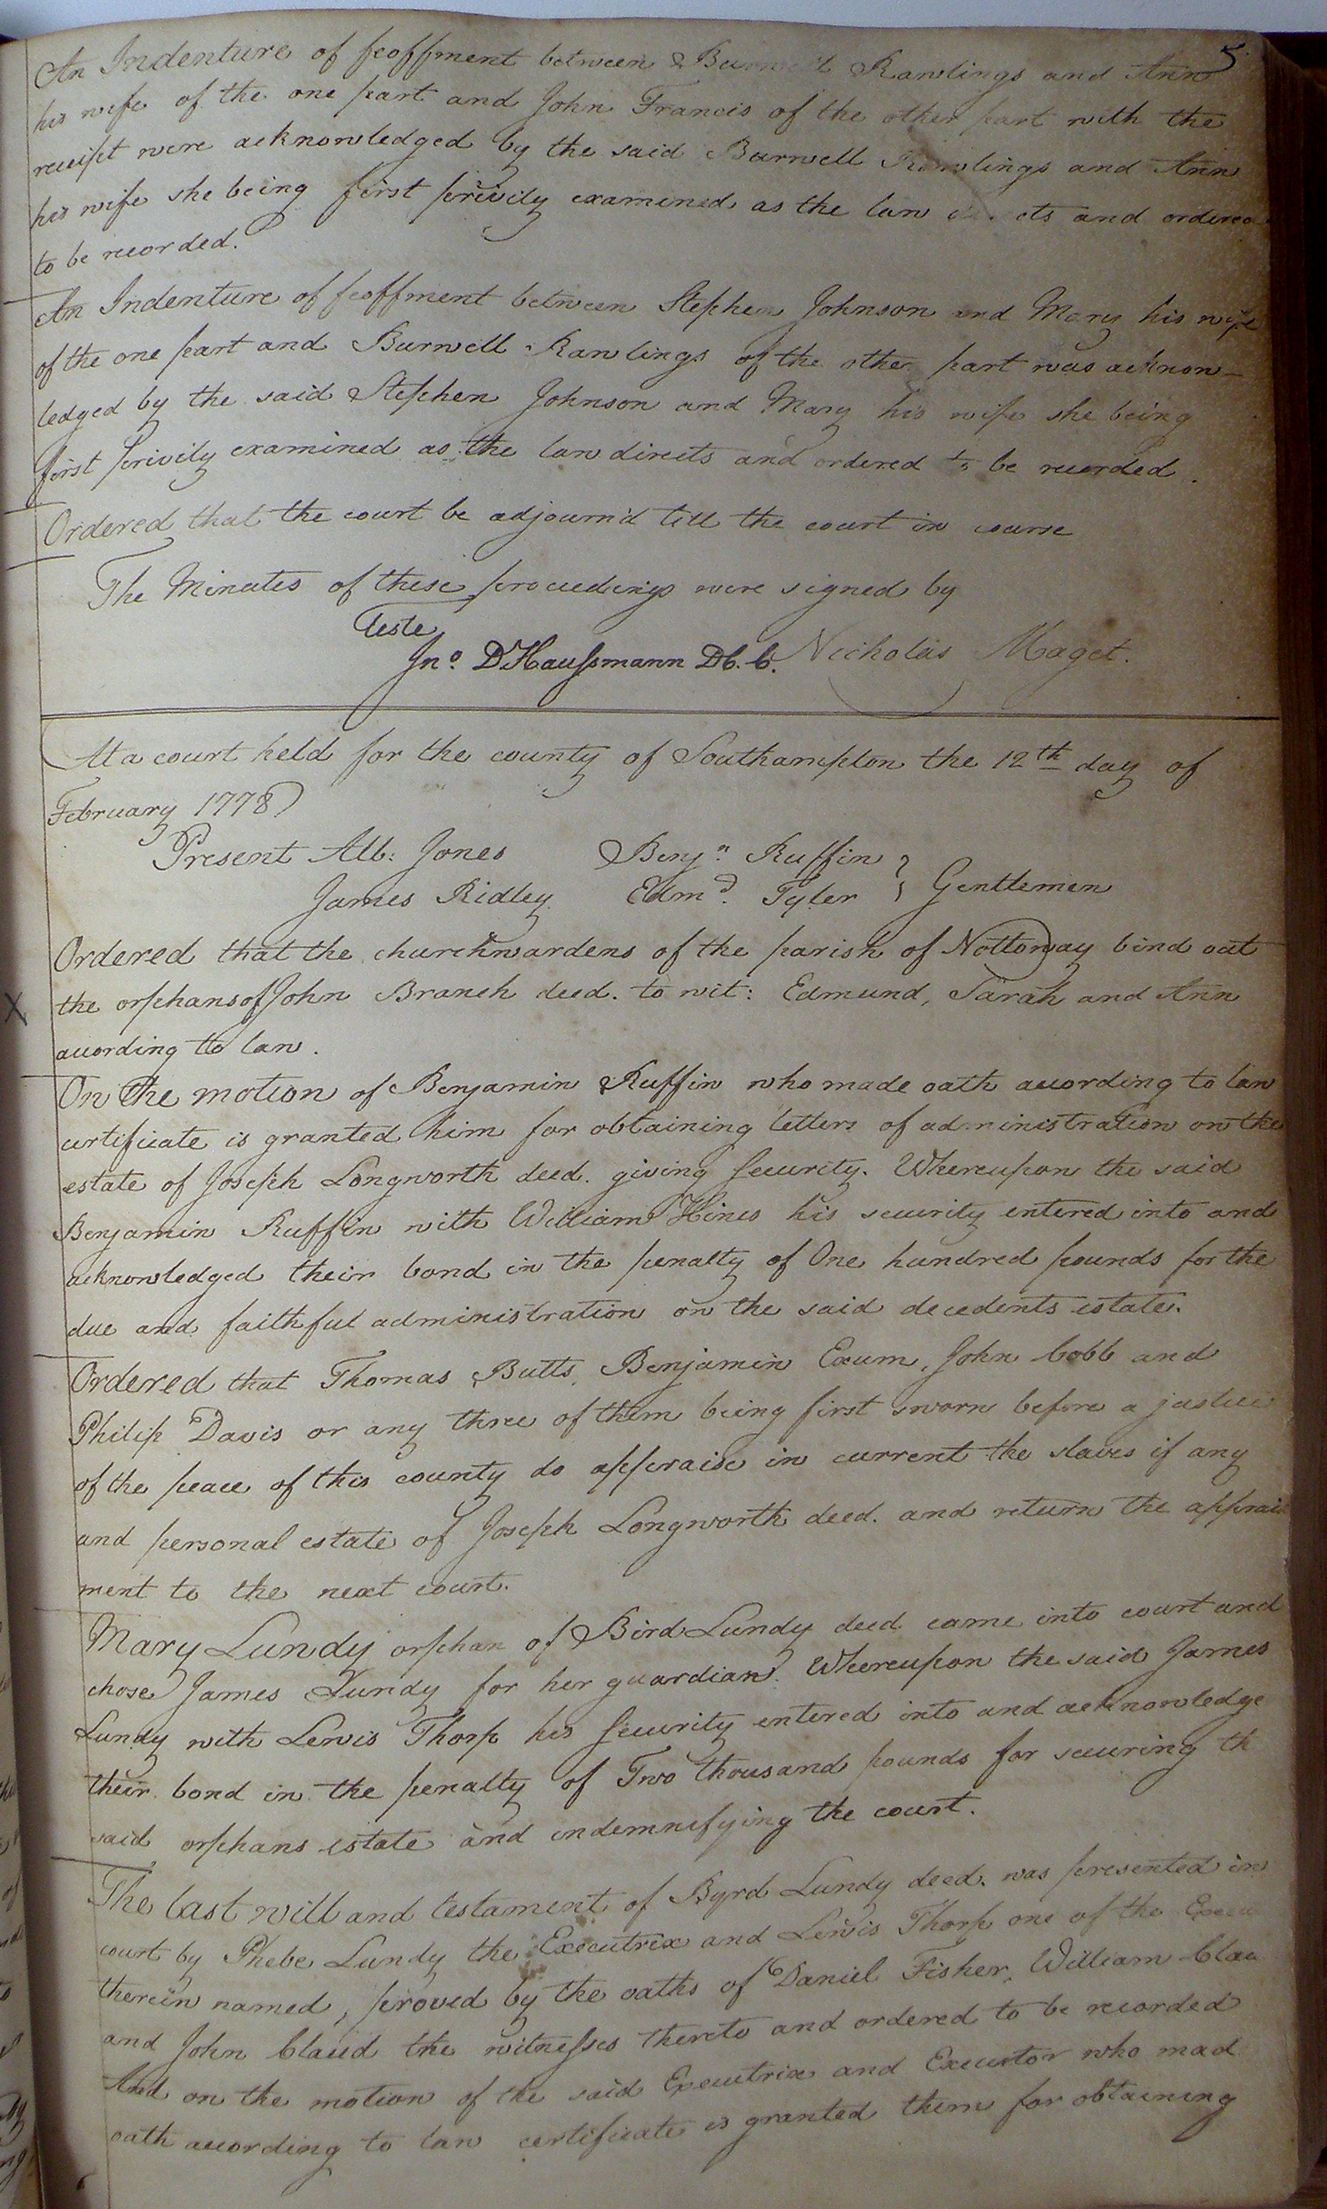 5.
An Indenture of feoffment between Burwell Rawlings and Ann
his wife of the one part and John Francis of the other part with the
receipt were acknowledged by the said Burwell Rawlings and Ann
his wife she being first privily examined as the law and ordered
to be recorded.
An Indenture of feoffment between Stephen Johnson and Mary his wife
of the one part and Burwell Rawlings of the other part was acknow-
ledged by the said Stephen Johnson and Mary his wife she being
first privily examined as the law directs and ordered to be recorded.
Ordered that the court be adjourn'd till the court in course
The Minutes of these proceedings were signed by
Teste
Jno. D'Haussmann D.C.C. Nicholas Maget.
At a court held for the county of Southampton the 12th day of
February 1778
Present Alb: Jones Benjn. Ruffin
James Ridley Edmd. Tyler } Gentlemen
Ordered that the churchwardens of the parish of Nottoway bind out
X the orphans of John Branch decd. to wit: Edmund, Sarah and Ann
according to law.
On the motion of Benjamin Ruffin who made oath according to law
certificate is granted him for obtaining letters of administration on the
estate of Joseph Longworth decd. giving security. Whereupon the said
Benjamin Ruffin with William Hines his security entered into and
acknowledged their bond in the penalty of One hundred pounds for the
due and faithful administration on the said decedents estate.
Ordered that Thomas Butts, Benjamin Exum, John Cobb and
Philip Davis or any three of them being first sworn before a justice
of the peace of this county do appraise in current the slaves if any
and personal estate of Joseph Longworth decd. and return the apprais
ment to the next court.
Mary Lundy orphan of Bird Lundy decd came into court and
chose James Lundy for her guardian. Whereupon the said James
Lundy with Lewis Thorp his security entered into and acknowledge
their bond in the penalty of Two thousand pounds for securing th
said orphans estate and indemnifying the court.
The last will and testament of Byrd Lundy decd. was presented in
court by Phebe Lundy the Executrix and Lewis Thorp one of the Execu
therein named, proved by the oaths of Daniel Fisher, William Clau
and John Claud the witnesses thereto and ordered to be recorded
And on the motion of the said Executrix and Executor who mad
oath according to law certificate is granted them for obtaining